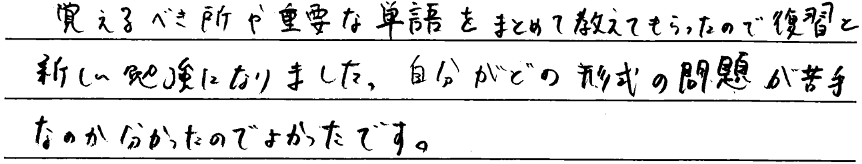 覚えるべき所や重要な単語をまとめて教えてもらったので復習と
新しい勉強になりました。自分がどの形式の問題が苦手
なのか分かったのでよかったです。